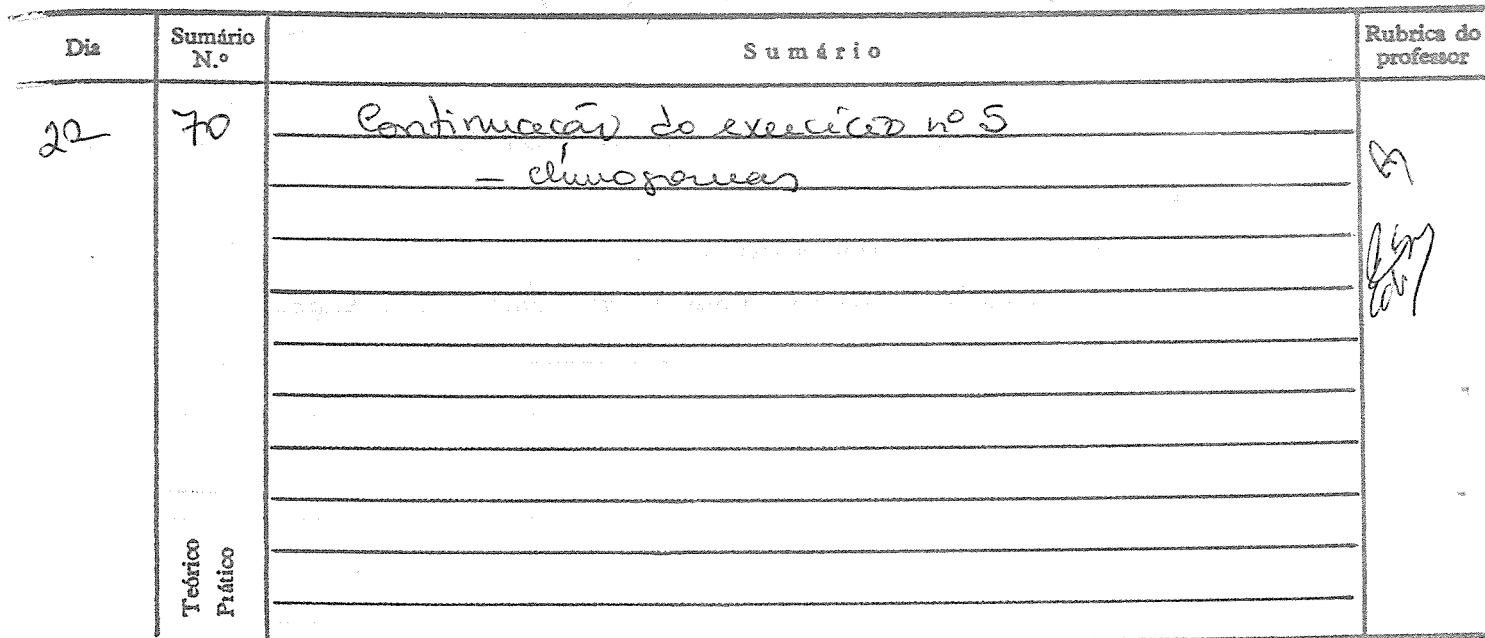 Dia
Sumário N.º
Sumário
Rubrica do professor
22
70
Continuação do exercício nº 5
- climogramas
Teórico
Prático